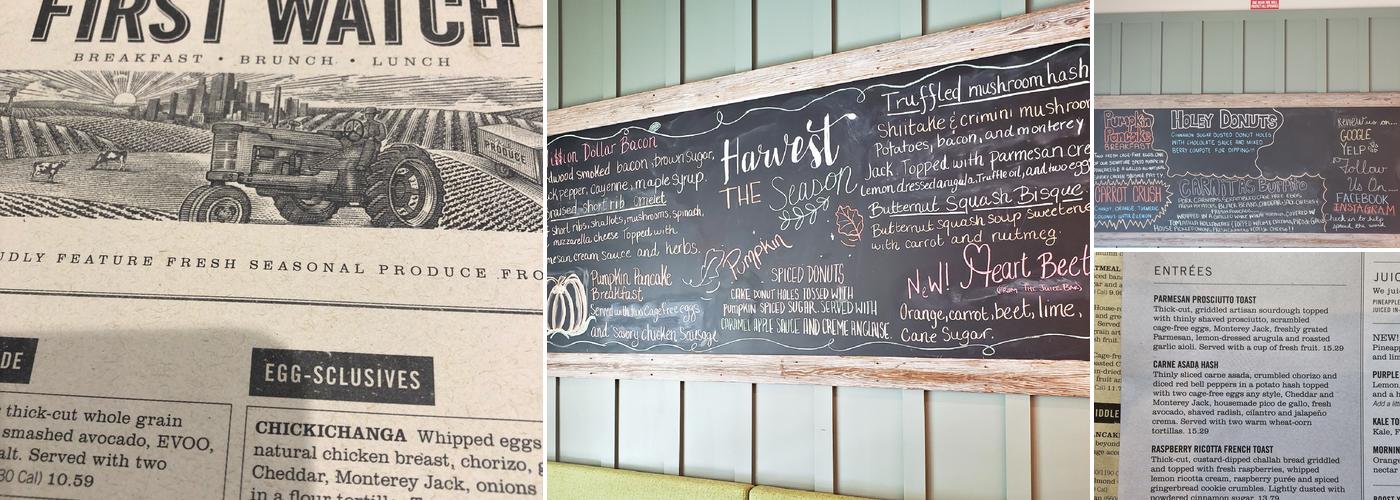 FIRST WATCH
BREAKFAST • BRUNCH • LUNCH
PRODUCE
UDLY FEATURE FRESH SEASONAL PRODUCE FRO
DE
thick-cut whole grain
smashed avocado, EVOO,
alt. Served with two
30 Cal) 10.59
EGG-SCLUSIVES
CHICKICHANGA Whipped eggs
natural chicken breast, chorizo, g
Cheddar, Monterey Jack, onions
in a flour tortilla.
Million Dollar Bacon
dwood smoked bacon, brown sugar,
ck pepper, Cayenne, maple syrup.
braised short rib Omelet
short ribs, shallots, mushrooms, spinach,
mozzarella cheese Topped with
mesan cream sauce and herbs.
Pumpkin Pancake
Breakfast
Served with two Cage free eggs
and savory chicken Sausage
Harvest
THE Season
Pumpkin
SPICED DONUTS
CAKE DONUT HOLES TOSSED WITH
PUMPKIN SPICED SUGAR. SERVED WITH
CARAMEL APPLE SAUCE AND CREME ANGLAISE.
Truffled mushroom hash
Shiitake & crimini mushroom
Potatoes, bacon, and monterey
Jack. Topped with parmesan cre
Lemon dressed arugula. Truffle oil, and two egg
Butternut Squash Bisque
Butternut squash soup sweetene
with carrot and nutmeg.
NEW! Heart Beet
(FROM THE JUICE BAR)
Orange, carrot, beet, lime,
Cane Sugar.
Pumpkin
Pancake
BREAKFAST
HOLEY DONUTS
CINNAMON SUGAR DUSTED DONUT HOLES
WITH CHOCOLATE SAUCE AND MIXED
BERRY COMPOTE FOR DIPPING!!
CARROT CRUSH
CARNITAS Burrito
Review us on...
GOOGLE
YELP
Follow
Us On
FACEBOOK
INSTAGRAM
ENTRÉES
PARMESAN PROSCIUTTO TOAST
Thick-cut, griddled artisan sourdough topped
with thinly shaved prosciutto, scrambled
cage-free eggs, Monterey Jack, freshly grated
Parmesan, lemon-dressed arugula and roasted
garlic aioli. Served with a cup of fresh fruit. 15.29
CARNE ASADA HASH
Thinly sliced carne asada, crumbled chorizo and
diced red bell peppers in a potato hash topped
with two cage-free eggs any style, Cheddar and
Monterey Jack, housemade pico de gallo, fresh
avocado, shaved radish, cilantro and jalapeño
crema. Served with two warm wheat-corn
tortillas. 15.29
RASPBERRY RICOTTA FRENCH TOAST
Thick-cut, custard-dipped challah bread griddled
and topped with fresh raspberries, whipped
lemon ricotta cream, raspberry purée and spiced
gingerbread cookie crumbles. Lightly dusted with
powdered cinnamon sugar. 13.79
JUIC
We juic
NEW!
Pineapp
and lim
PURPLE
KALE TO
Kale, F
MORNIN
Orange
nectar